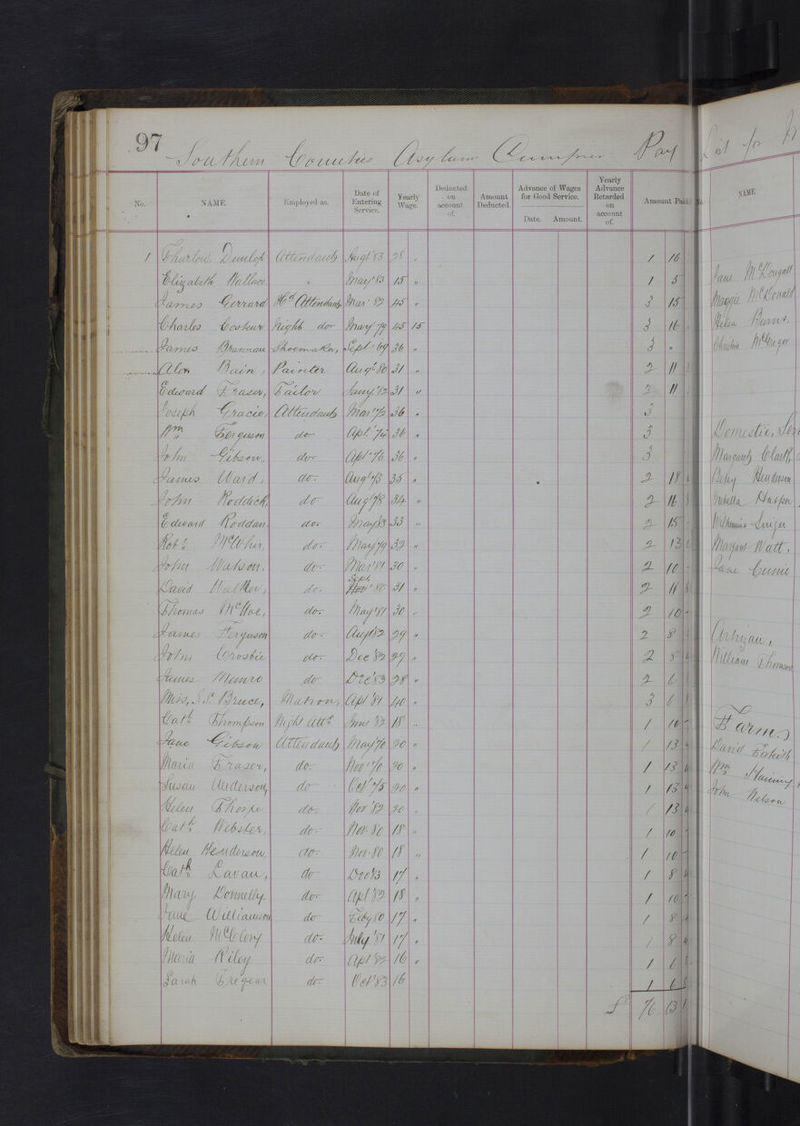 97
Southern Counties Asylum Dumfries Pay List for
No. NAME. Employed as. Date of Entering Service. Yearly Wage. Deducted on account of. Amount Deducted. Advance of Wages for Good Service. Date. Amount. Yearly Advance Retarded on account of. Amount Paid. NAME
1 Dunlop Attendant Augt 83 28 " 1 16
Elizabeth Wallace " May 83 15 " 1 5
James Gerrard Hd Attendant Mar 82 45 " 3 15
Charles Night do May 79 45 15 3 16
James Brannan Shoemaker, Sept 69 36 " 3 "
Alex Bain, Painter Augt 80 31 " 2 11
Edward Fraser, Tailor Jany 31 " 2 11
Joseph Gracie, Attendant Mar 36 " 3
Wm Ferguson do Apl 74 36 " 3
John Gibson, do Apl 76 36 " 3
James Ward, do. Aug 35 " 2 18
John Roddick, do Aug 78 34 " 2 16
Edward Roddan do May 83 33 " 2 15
Robt do. May 79 32 " 2 13
John Watson. do Mar 81 30 " 2 10
David Walker, do. Sept 80 31 " 2 11
Thomas McHoe, do. May 81 30 " 2 10
James Ferguson do Aug 82 29 " 2 8
John Crosbie do. Dec 82 29 " 2 8
James Munro do Dec 83 28 " 2 6
Miss, Bruce, Matron, Apl 81 40 " 3 6
Cath Thompson Night Attt June 82 18 " 1 10
Jane Gibson Attendant May 70 20 " 1 13
Maria Fraser, do. Nov 70 20 " 1 13
Susan Anderson, do Oct 75 20 " 1 13
Helen Thorpe do. Nov 82 20 " 1 13
Cath Webster, do. Nov 80 18 " 1 10
Helen Henderson do. Nov 80 18 " 1 10
Cath Lavan, do Dec 83 17 " 1 8
Mary Donnelly do Apl 82 18 " 1 10
Jane Williamson do Feby 80 17 " 1 8
Helen McClery do. July 81 17 " 1 8
Maria Riley do Apl 82 16 " 1 6
Sarah Tregear do Oct 83 16 1 6
£ 76 13
Jane McDougall
Maggie McDonald
Helen Burns.
McGregor
Domestic,
Margaret Clark,
Betsy Henderson
Isabella Harper
Wilhelmina Singer
Margaret Watt.
Jane
Artizan,
William Thomson
Farm
David
Wm
John Nelson